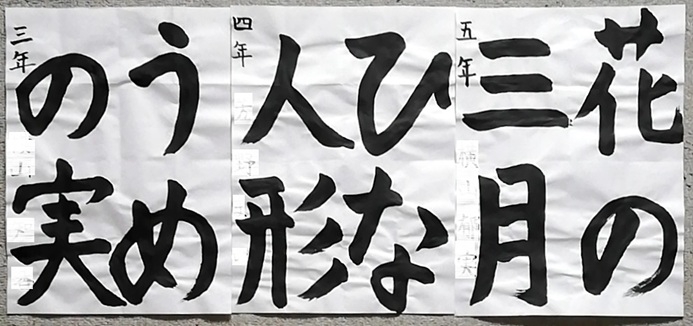 花の
三月
五年
ひな
人形
四年
うめ
の実
三年